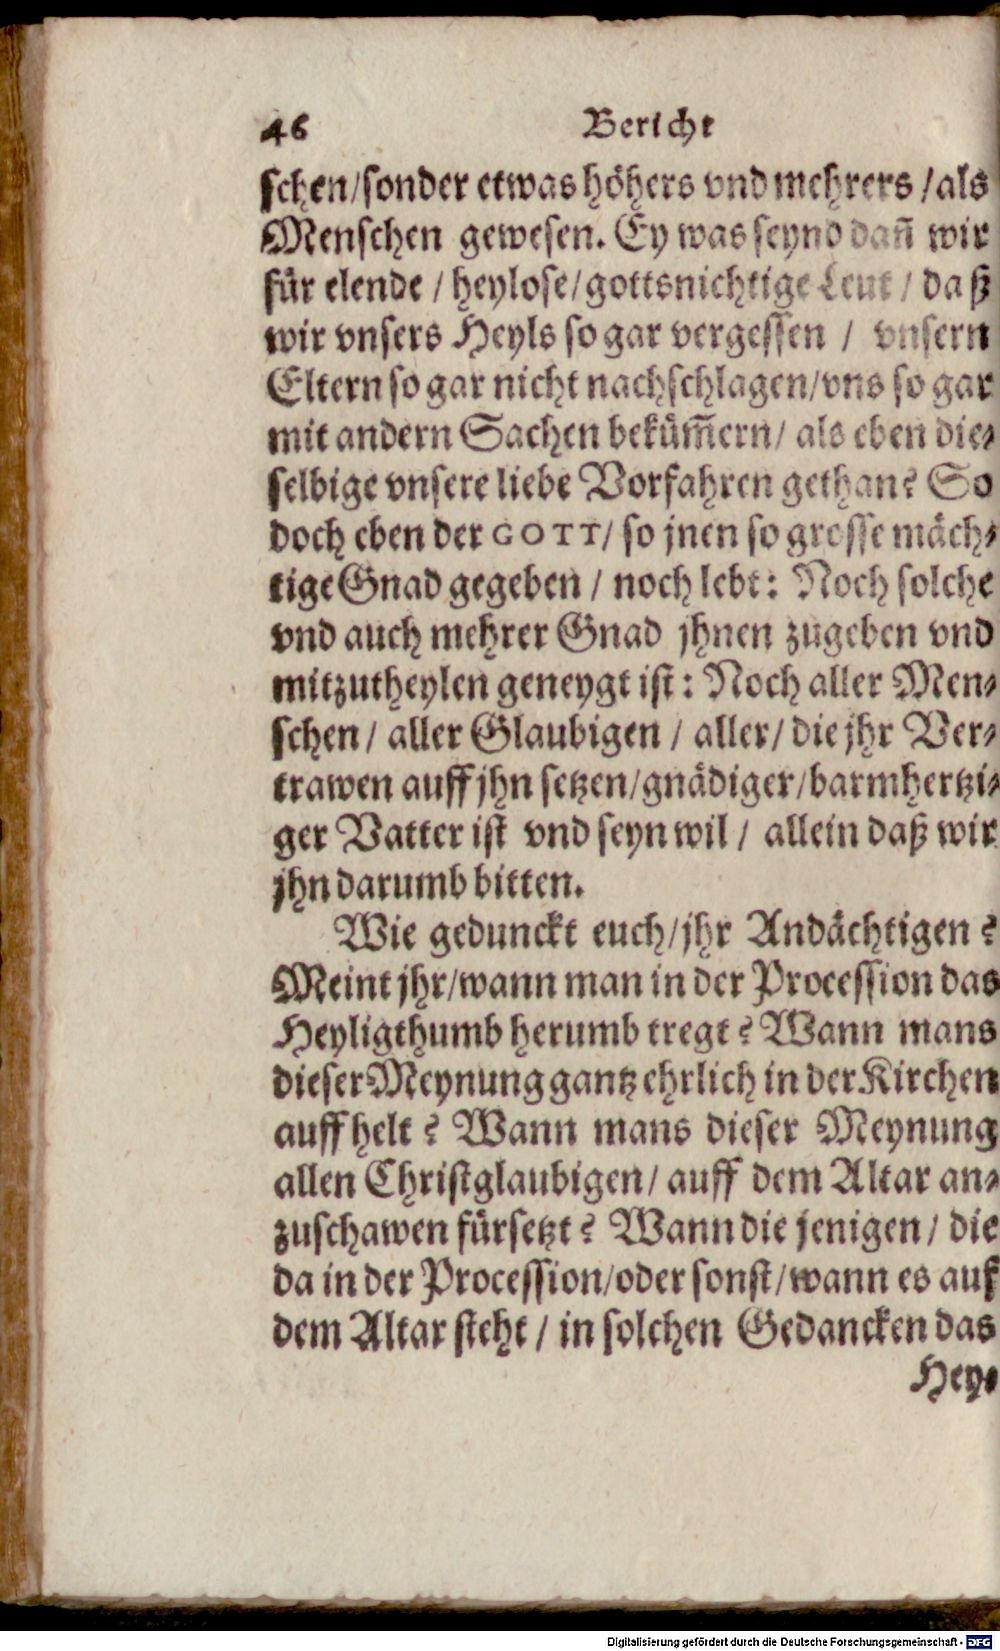 46 Bericht
schen/sonder etwas höhers vnd mehrers / als
Menschen gewesen. Ey was seynd dañ wir
für elende / heylose/gottsnichtige Leut / daß
wir vnsers Heyls so gar vergessen / vnsern
Eltern so gar nicht nachschlagen/vns so gar
mit andern Sachen beküm̃ern/ als eben die-
selbige vnsere liebe Vorfahren gethan? So
doch eben der GOTT/ so jnen so grosse mäch-
tige Gnad gegeben / noch lebt: Noch solche
vnd auch mehrer Gnad jhnen zugeben vnd
mitzutheylen geneygt ist: Noch aller Men-
schen / aller Glaubigen / aller/ die jhr Ver-
trawen auff jhn setzen/gnädiger/barmhertzi-
ger Vatter ist vnd seyn wil / allein daß wir
jhn darumb bitten.
Wie gedunckt euch/jhr Andächtigen?
Meint jhr/wann man in der Procession das
Heyligthumb herumb tregt? Wann mans
dieser Meynung gantz ehrlich in der Kirchen
auff helt? Wann mans dieser Meynung
allen Christglaubigen/ auff dem Altar an-
zuschawen fürsetzt? Wann die jenigen/ die
da in der Procession/oder sonst/wann es auf
dem Altar steht / in solchen Gedancken das
Hey-
Digitalisierung gefördert durch die Deutsche Forschungsgemeinschaft - DFG